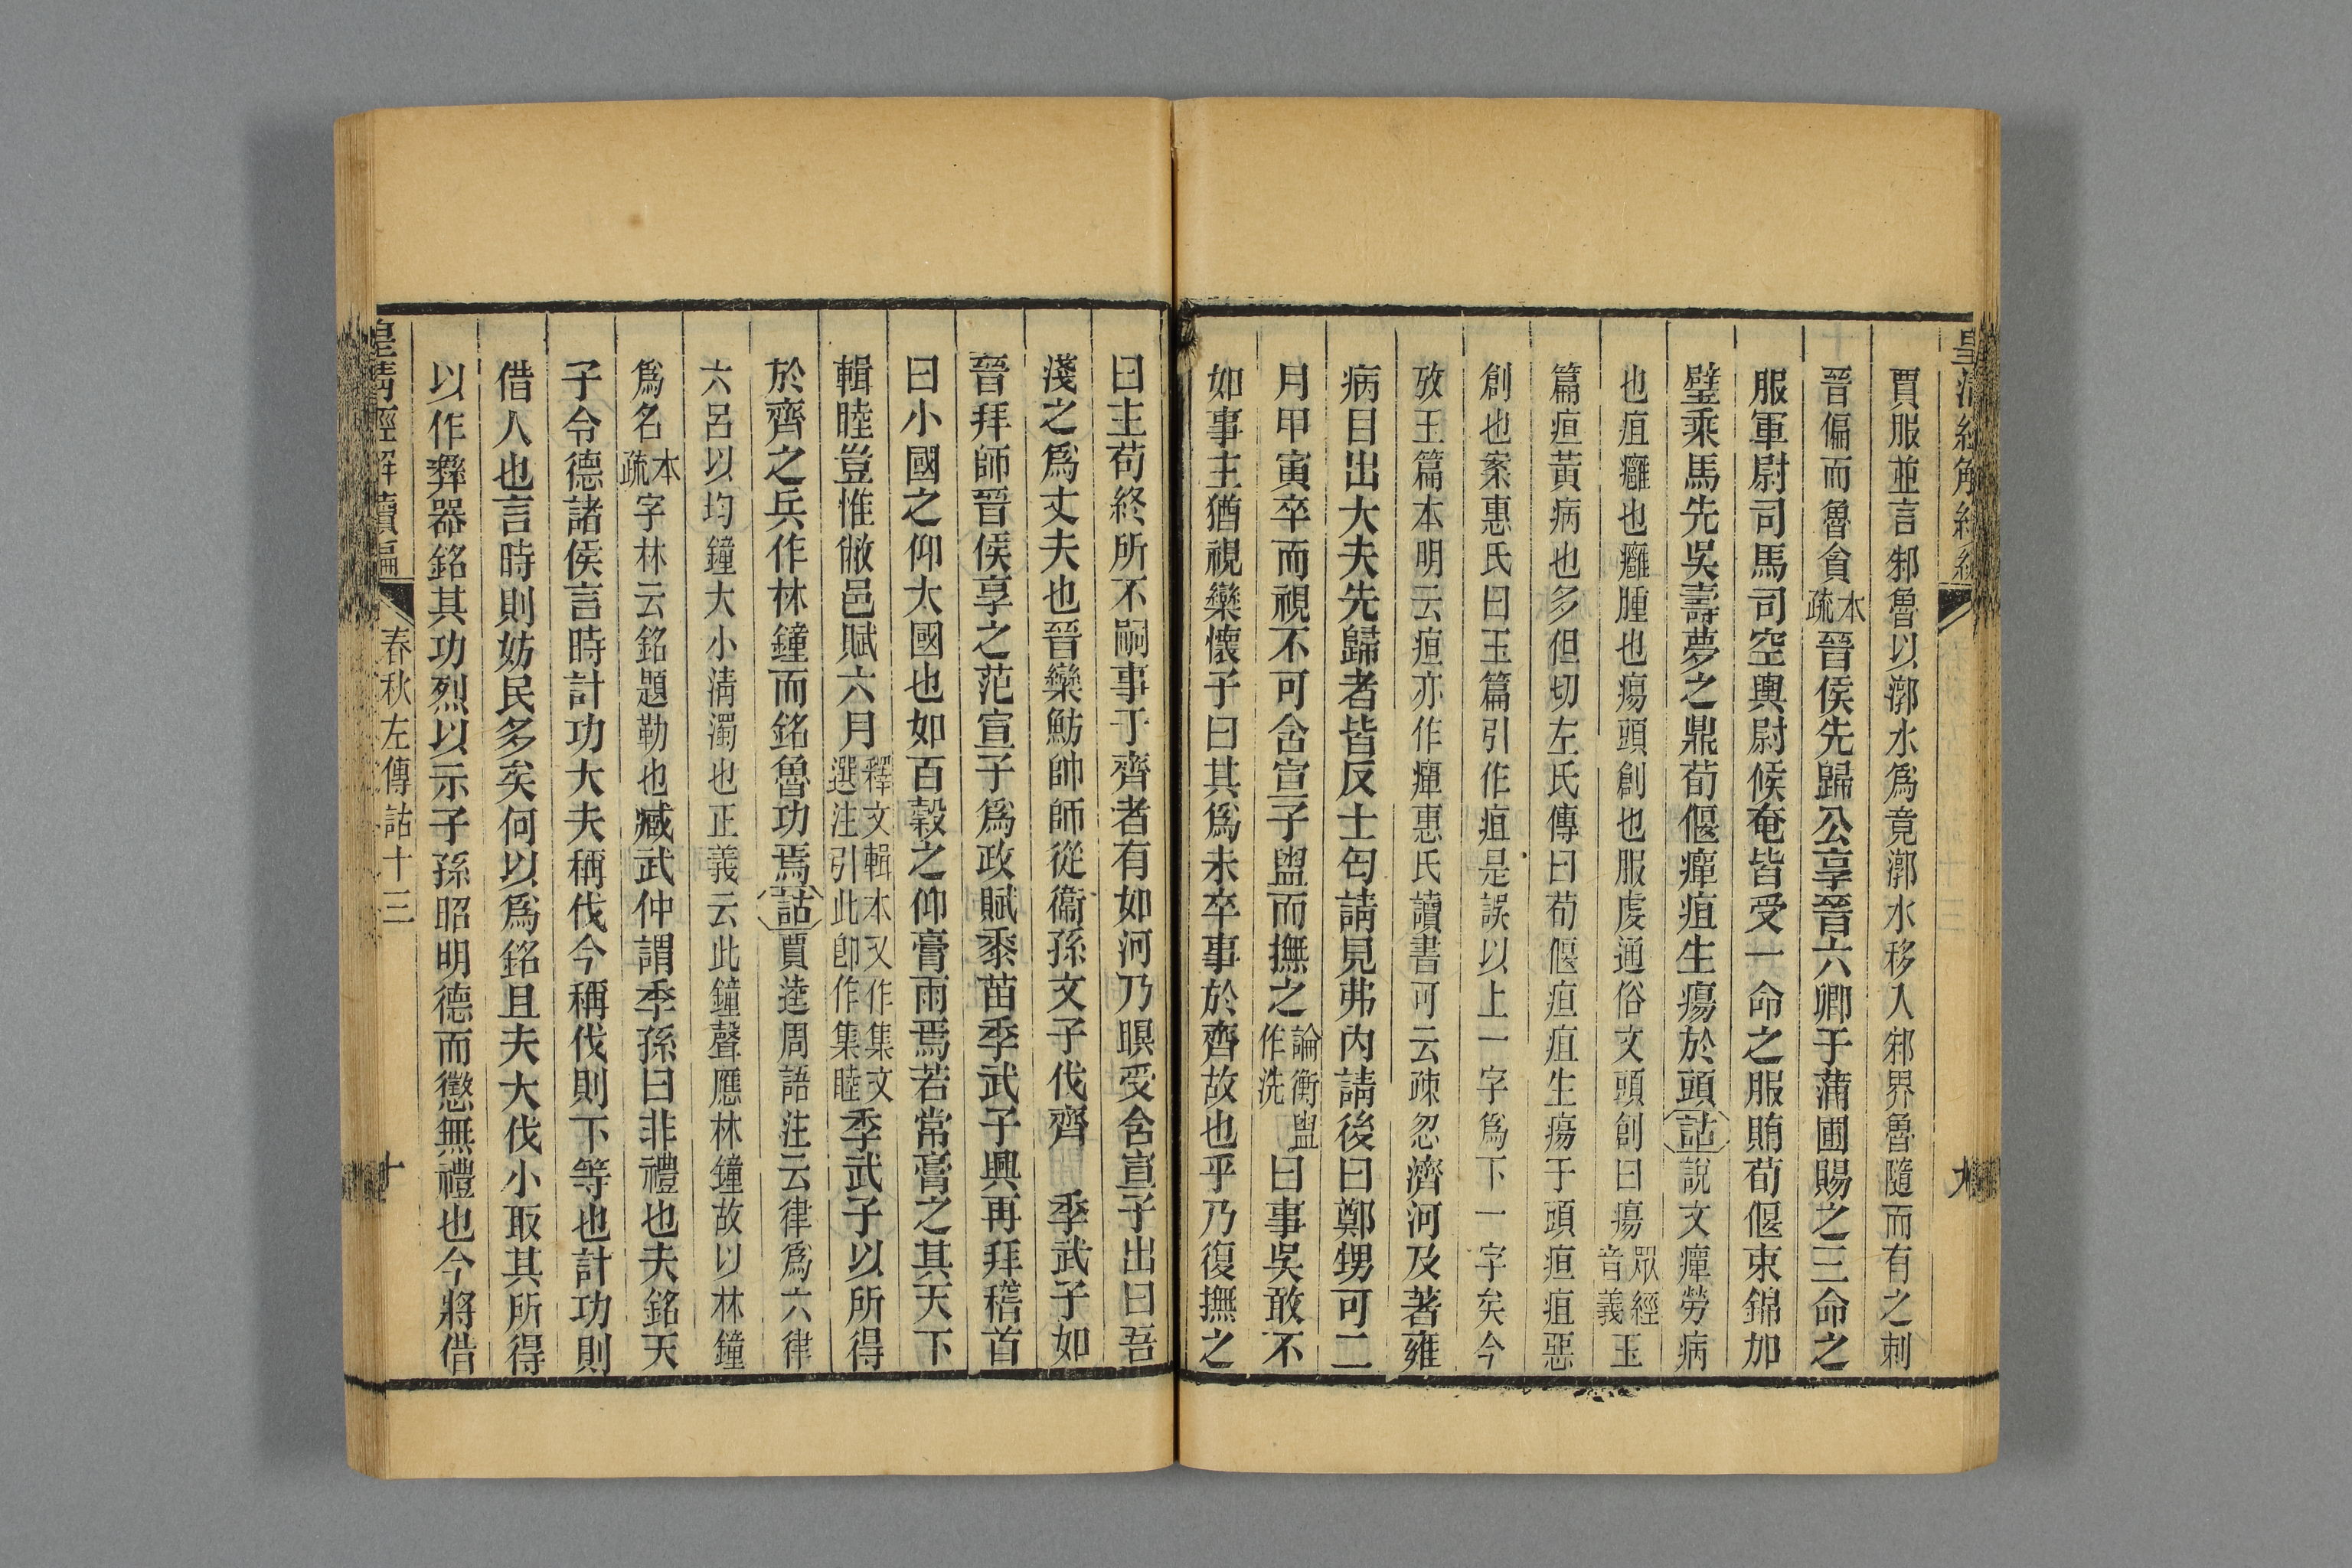 賈服並言邾魯以漷水為竟漷水移入邾界魯隨而有之刺
晉偏而魯貪本疏晉侯先歸公享晉六卿于蒲圃賜之三命之
服軍尉司馬司空輿尉候奄皆受一命之服賄荀偃束錦加
璧乘馬先吳壽夢之鼎荀偃癉疽生瘍於頭詁說文癉勞病
也疽癰也癰腫也瘍頭創也服虔通俗文頭創曰瘍眾經音義玉
篇疸黃病也多但切左氏傳曰荀偃疸疽生瘍于頭疸疽惡
創也案惠氏曰玉篇引作疽是誤以上一字為下一字矣今
攷玉篇本明云疸亦作癉惠氏讀書可云疎忽濟河及著雍
病目出大夫先歸者皆反士匄請見弗內請後曰鄭甥可二
月甲寅卒而視不可含宣子盥而撫之論衡盥作洗曰事吳敢不
如事主猶視欒懷子曰其為未卒事於齊故也乎乃復撫之
曰主苟終所不嗣事于齊者有如河乃瞑受含宣子出曰吾
淺之為丈夫也晉欒魴帥師從衞孫文子伐齊 季武子如
晉拜師晉侯享之范宣子為政賦黍苗季武子興再拜稽首
曰小國之仰大國也如百穀之仰膏雨焉若常膏之其天下
輯睦豈惟敝邑賦六月釋文輯本又作集文選注引此卽作集睦季武子以所得
於齊之兵作林鐘而銘魯功焉詁賈逵周語注云律為六律
六呂以均鐘大小清濁也正義云此鐘聲應林鐘故以林鐘
為名本疏字林云銘題勒也臧武仲謂季孫曰非禮也夫銘天
子令德諸侯言時計功大夫稱伐今稱伐則下等也計功則
借人也言時則妨民多矣何以為銘且夫大伐小取其所得
以作彝器銘其功烈以示子孫昭明德而懲無禮也今將借
皇清經解續編
春秋左傳詁十三
十